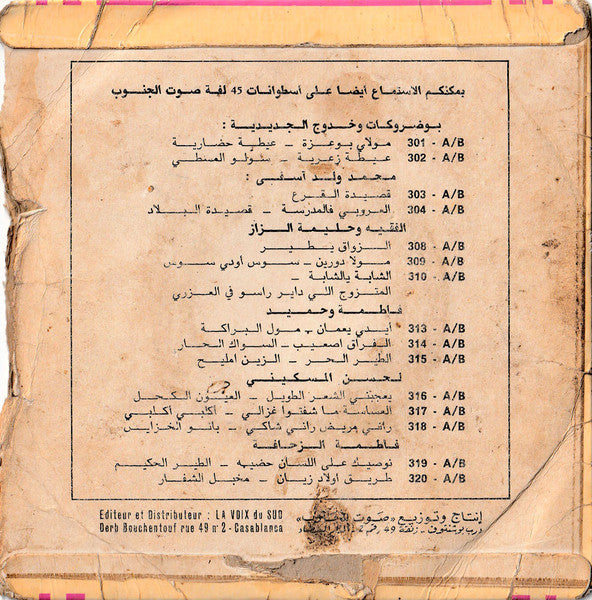 يمكنكم الاستماع أيضا على أسطوانات 45 لفة صوت الجنوب
بوضروكات وخدوج الجديدية :
301 - A/B مولاي بوعزة - عيطة حضارية
302 - A/B عيطة زعرية - سولو المسطي
محمد ولد آسفي :
303 - A/B قصيدة القرع
304 - A/B العروبي فالمدرسة - قصيدة البلاد
الفقيه وحليمة الزاز
308 - A/B الزواق يطير
309 - A/B مولا دورين - سوس أودي سوس
310 - A/B الشابة يالشابة -
المتزوج اللي داير راسو في العزري
فاطمة وحميد
313 - A/B أيدي يعمان - مول البراكة
314 - A/B الفراق اصعيب - السواك الحار
315 - A/B الطير الحر - الزين امليح
لحسن المسكيني
316 - A/B يعجبني الشعر الطويل - العيون الكحل
317 - A/B العساسة ما شفتوا غزالي - أكلبي أكلبي
318 - A/B راني مريض راني شاكي - بانو الخزاين
فاطمة الزحافة
319 - A/B نوصيك على اللسان حضيه - الطير الحكيم
320 - A/B طريق اولاد زيان - مخبل الشفار
Editeur et Distributeur : LA VOIX du SUD
Derb Bouchentouf rue 49 n° 2 - Casablanca
إنتاج وتوزيع «صوت الجنوب»
درب بوشنتوف - زنقة 49 رقم 2 الدار البيضاء